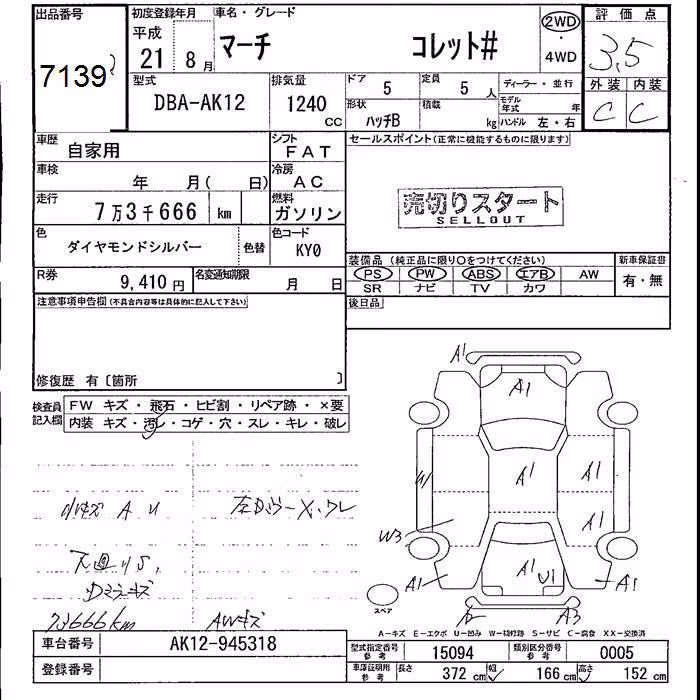 出品番号 初度登録年月 車名・グレード 2WD ・ 4WD 評価点
7139 平成 21 8月 マーチ コレット# 3.5
型式 DBA-AK12 排気量 1240 CC ドア 5 定員 5人 ディーラー・並行 外装 内装
形状 ハッチB 積載 kg モデル年式 年 ハンドル 左・右 C C
車歴 自家用 シフト FAT セールスポイント(正常に機能するものに限ります)
車検 年 月( 日) 冷房 AC
走行 7万3千666 km 燃料 ガソリン 売切りスタート
SELLOUT
色 ダイヤモンドシルバー 色替 色コード KY0
装備品(純正品に限り〇をつけてください) 新車保証書
PS PW ABS エアB AW 有・無
SR ナビ TV カワ
R券 9,410円 名変通知期限 月 日
注意事項申告欄(不具合内容等は具体的に記入して下さい) 後日品
修復歴 有〔箇所 〕
検査員記入欄 FW キズ・飛石・ヒビ割・リペア跡・×要
内装 キズ・汚レ・コゲ・穴・スレ・キレ・破レ
A1 A1
W A1 A1
A1
W3
A1 A1 U1 A1
A2 A3
小キズ A U
下廻りS,
73666km AWキズ
スペア
A-キズ E-エクボ U-凹み W-補修跡 S-サビ C-腐食 XX-交換済
車台番号 AK12-945318 型式指定番号 参考 15094 類別区分番号 参考 0005
登録番号 車庫証明用 参考 長さ 372 cm 幅 166 cm 高さ 152 cm